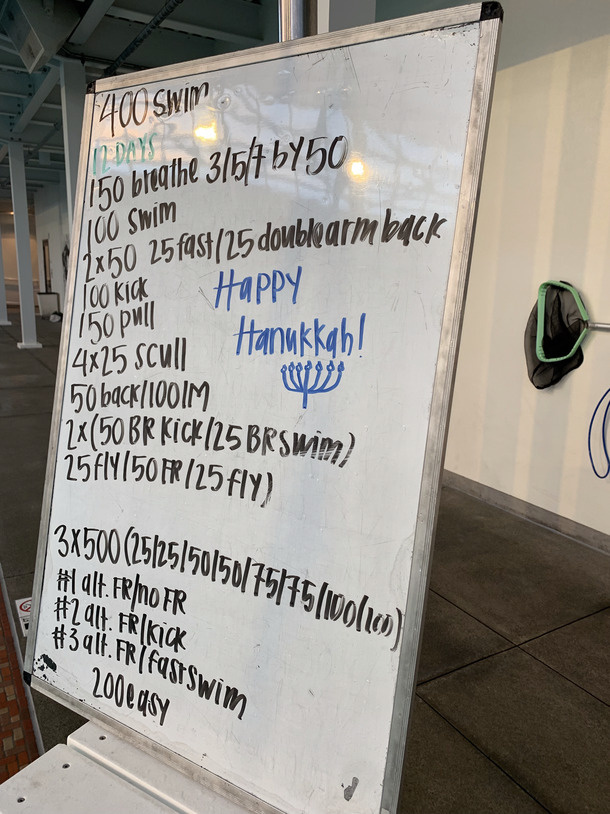 400 swim
12 DAYS
150 breathe 3/5/7 by 50
100 swim
2x50 25fast/25 doublearm back
100 kick
150 pull
4x25 scull
50 back/100 IM
2x(50 BR Kick/25 BR swim)
25 fly/50 FR/25 fly)
Happy
Hanukkah!
3x500 (25/25/50/50/75/75/100/100)
#1 alt. FR/no FR
#2 alt. FR/kick
#3 alt. FR/fast swim
200 easy